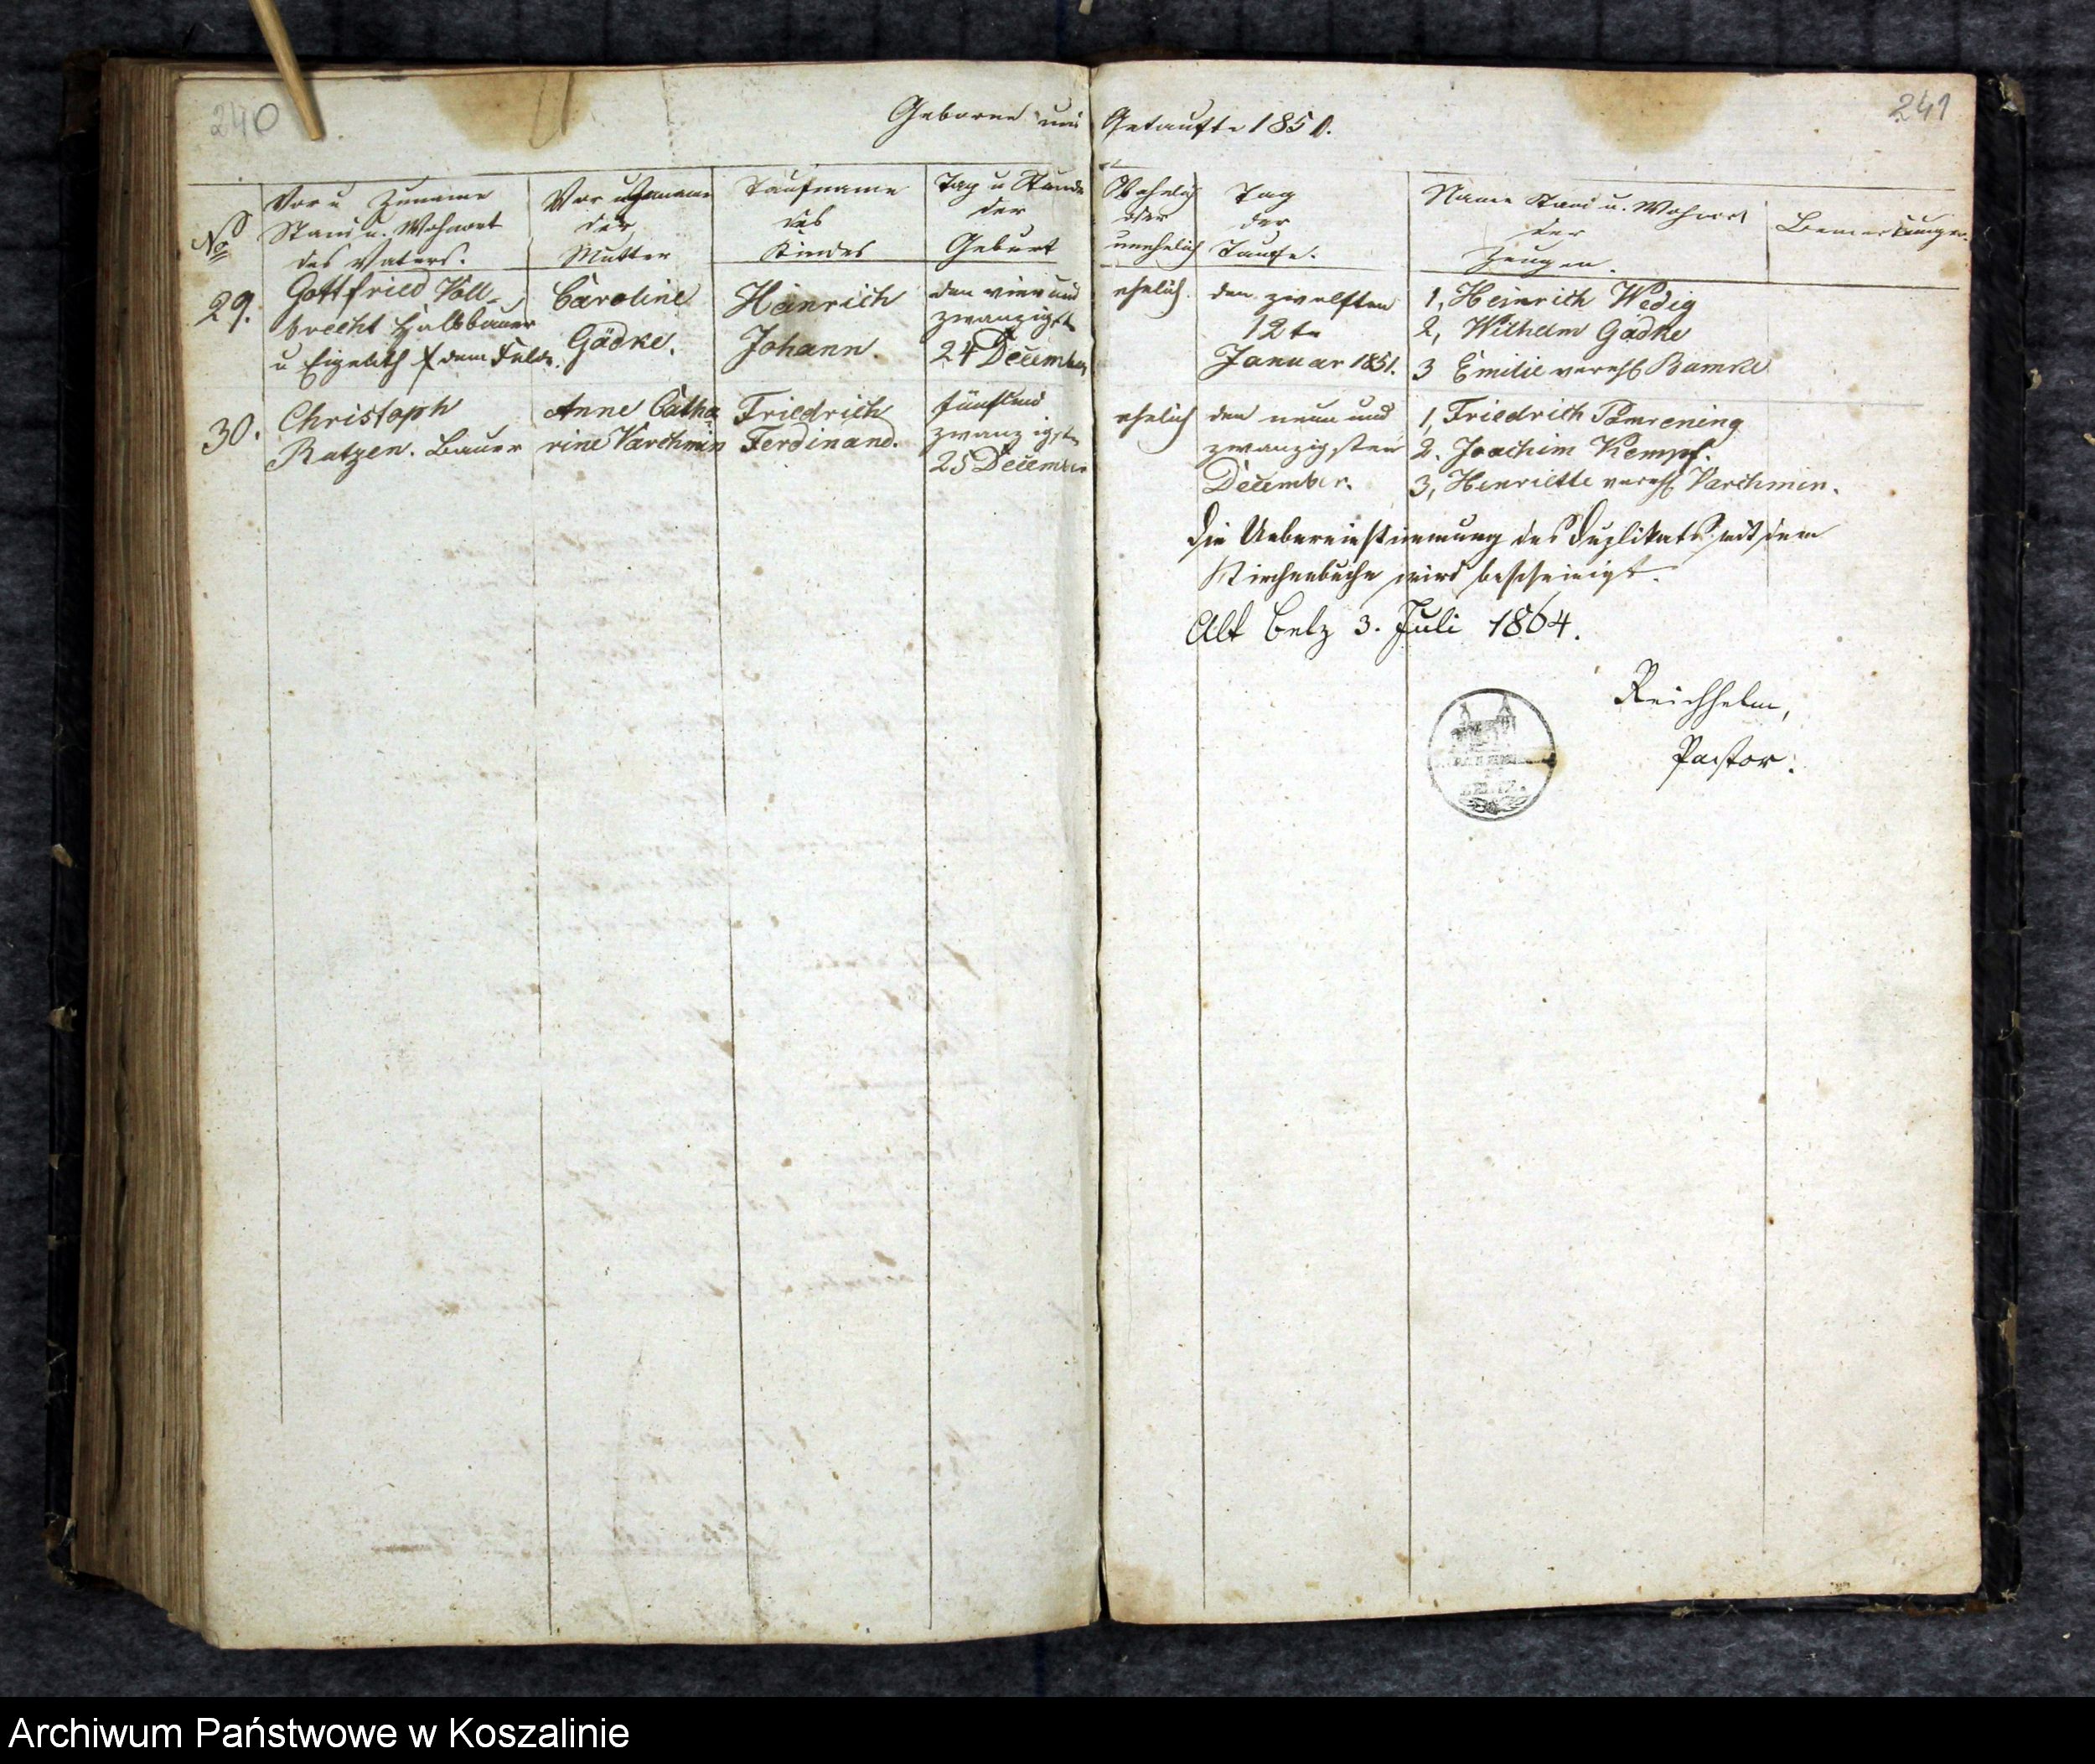 240
Geborne und
No
Vor u Zuname
Stand u. Wohnort
des Vaters.
Vor u Zuname
der
Mutter
Taufname
des
Kindes
Tag u Stunde
der
Geburt
29.
Gottfried Voll-
brecht Halbbauer
u Eigenth dem Felde.
Caroline
Gädke.
Heinrich
Johann.
den vier und
zwanzigste
24 December
30.
Christoph
Ratzen. Bauer
Anne Catha
rine Varchmin
Friedrich
Ferdinand.
fünfund
zwanzigste
25 December
241
Getaufte 1850.
Ehelich
oder
unehelich
Tag
der
Taufe.
Name Stand u. Wohnort
der
Zeugen.
Bemerkungen.
ehelich.
den zwölften
12te
Januar 1851.
1, Heinrich Wedig
2, Wilhelm Gädke
3 Emilie vereh Bamke
ehelich
den neun und
zwanzigsten
December.
1, Friedrich
2. Joachim Kempf.
3, Henriette vereh Varchmin.
Die Uebereinstimmung des Duplikats mit dem
Kirchenbuche wird bescheinigt.
Alt Belz 3. Juli 1864.
Reichhelm,
Pastor.
Archiwum Państwowe w Koszalinie